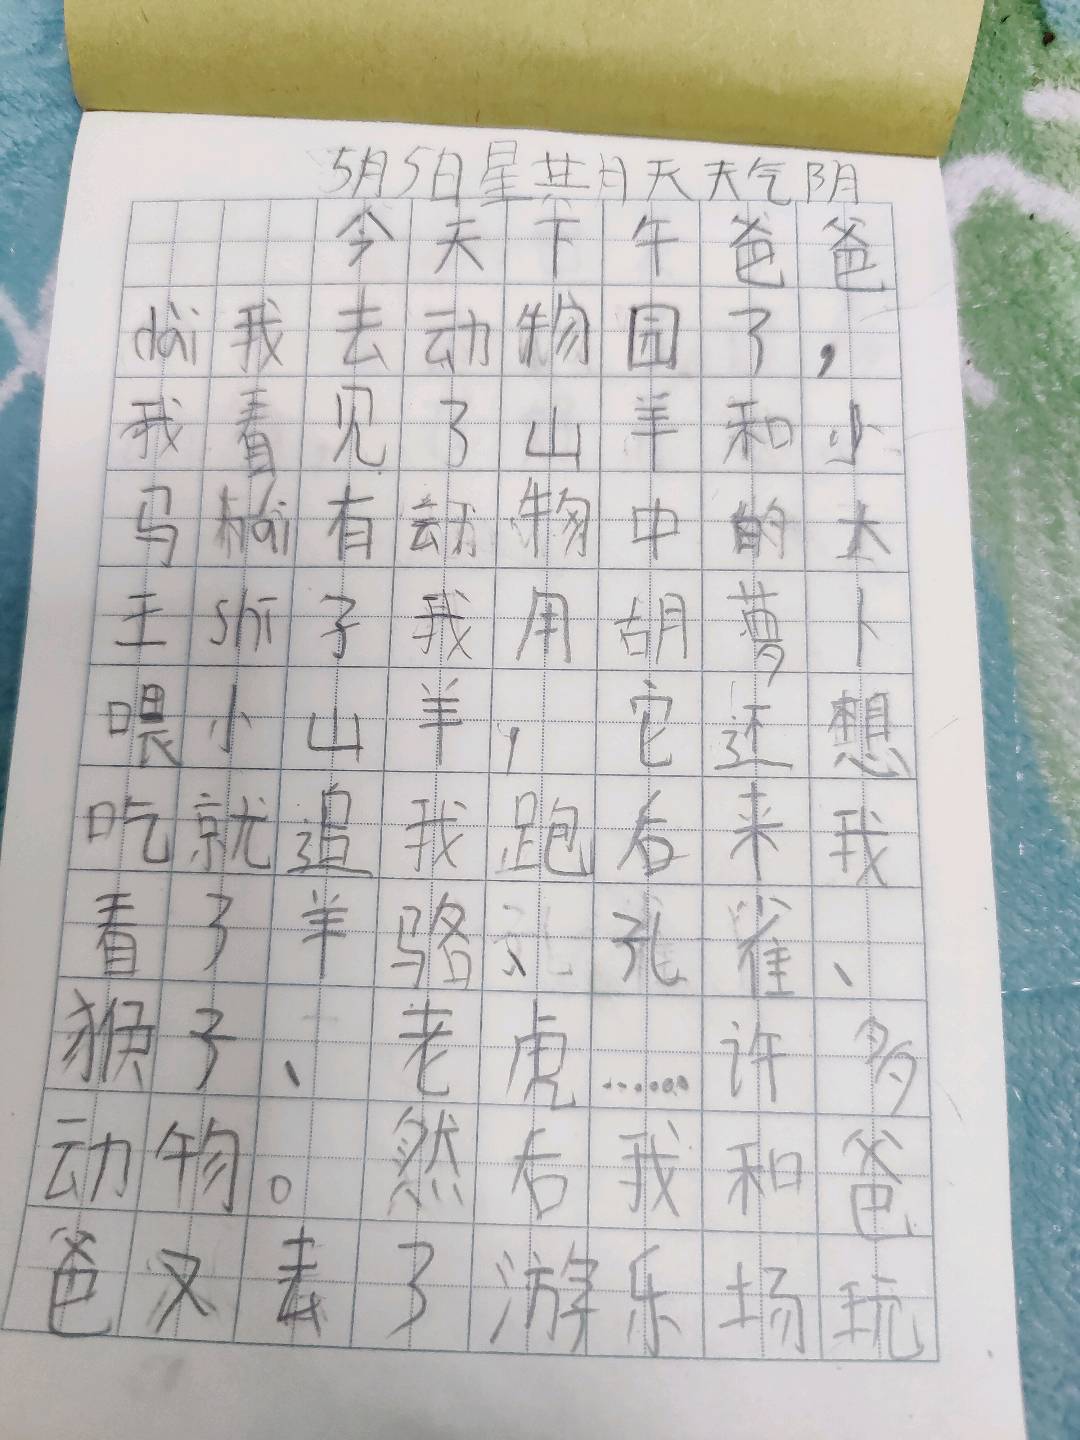 5月5日星其月天天气阴
今天下午爸爸
dài我去动物园了，
我看见了山羊和小
马hái有动物中的大
王shī子我用胡萝卜
喂小山羊，它还想
吃就追我跑后来我
看了羊骆、孔雀、
猴子、老虎……许多
动物。然后我和爸
爸又去了游乐场玩